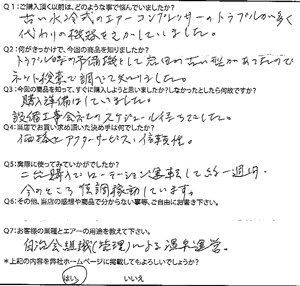 Q1：ご購入頂く以前は、どのような事で悩んでいましたか？
古い水冷式のエアーコンプレッサーのトラブルが多く
代わりの機器をさがしていました。
Q2：何がきっかけで、今回の商品を知りましたか？
トラブル時の予備機として 古い型があったので
ネット検索で調べて知りました。
Q3：今回の商品を知って、すぐに購入しようと思いましたか？しなかったとしたら何故ですか？
購入準備はしていました。
設備工事会社とのスケジュール待ちでした。
Q4：当店でお買い求め頂いた決め手は何でしたか？
価格とアフターサービス、信頼性。
Q5：実際に使ってみていかがでしたか？
二台購入でローテーション運転して 一週間
今のところ 順調稼動しています。
Q6：その他、当店の感想や商品で分からない事等、ご自由にお書き下さい。
Q7：お客様の業種とエアーの用途を教えて下さい。
自治会組織(管理)による 温泉運営。
＊上記の内容を弊社ホームページに掲載してもよろしいでしょうか？
はい　いいえ